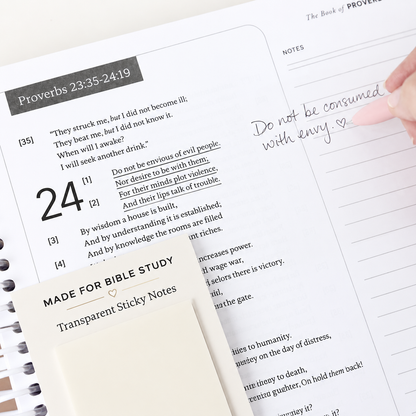 The Book of PROVERBS
NOTES
Proverbs 23:35-24:19
[35] "They struck me, but I did not become ill;
They beat me, but I did not know it.
When will I awake?
I will seek another drink."
24 [1] Do not be envious of evil people,
Nor desire to be with them,
[2] For their minds plot violence,
And their lips talk of trouble.
[3] By wisdom a house is built,
And by understanding it is established;
[4] And by knowledge the rooms are filled
nt riches.
increases power.
wage war,
selors there is victory.
the gate.
to humanity.
on the day of distress,
to death,
On hold them back!
it?
Do not be consumed
with envy. ♡
MADE FOR BIBLE STUDY
Transparent Sticky Notes